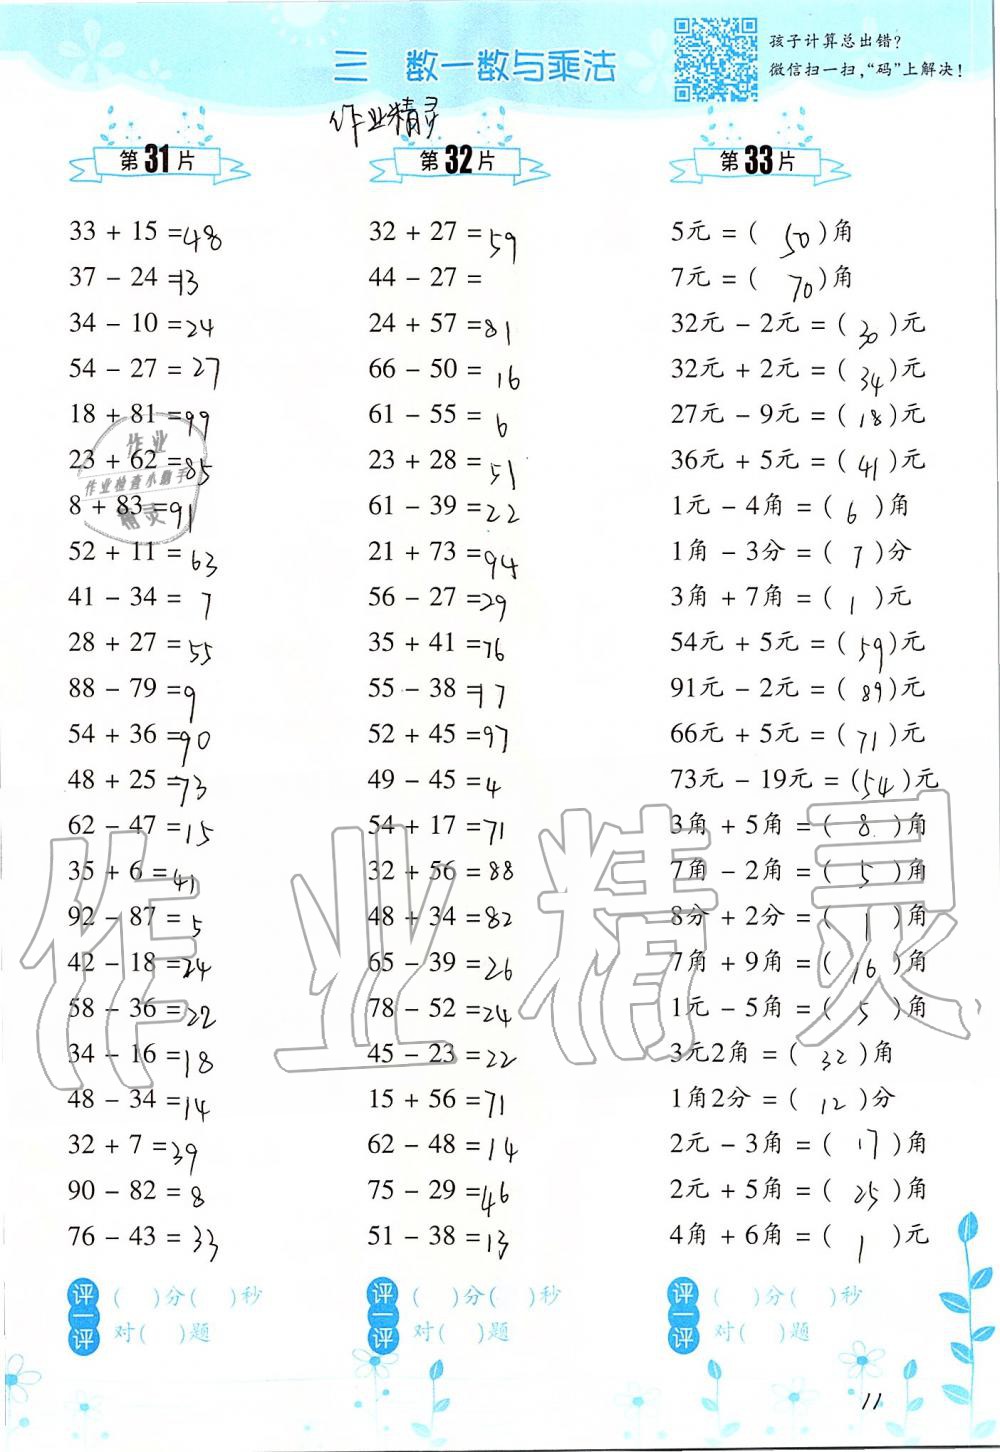 三 数一数与乘法
孩子计算总出错?
微信扫一扫,“码”上解决!
作业精灵
第31片
33 + 15 = 48
37 - 24 = 13
34 - 10 = 24
54 - 27 = 27
18 + 81 = 99
23 + 62 = 85
8 + 83 = 91
52 + 11 = 63
41 - 34 = 7
28 + 27 = 55
88 - 79 = 9
54 + 36 = 90
48 + 25 = 73
62 - 47 = 15
35 + 6 = 41
92 - 87 = 5
42 - 18 = 24
58 - 36 = 22
34 - 16 = 18
48 - 34 = 14
32 + 7 = 39
90 - 82 = 8
76 - 43 = 33
评一评
( )分( )秒
对( )题
第32片
32 + 27 = 59
44 - 27 =
24 + 57 = 81
66 - 50 = 16
61 - 55 = 6
23 + 28 = 51
61 - 39 = 22
21 + 73 = 94
56 - 27 = 29
35 + 41 = 76
55 - 38 = 17
52 + 45 = 97
49 - 45 = 4
54 + 17 = 71
32 + 56 = 88
48 + 34 = 82
65 - 39 = 26
78 - 52 = 24
45 - 23 = 22
15 + 56 = 71
62 - 48 = 14
75 - 29 = 46
51 - 38 = 13
评一评
( )分( )秒
对( )题
第33片
5元 = ( 50 )角
7元 = ( 70 )角
32元 - 2元 = ( 30 )元
32元 + 2元 = ( 34 )元
27元 - 9元 = ( 18 )元
36元 + 5元 = ( 41 )元
1元 - 4角 = ( 6 )角
1角 - 3分 = ( 7 )分
3角 + 7角 = ( 1 )元
54元 + 5元 = ( 59 )元
91元 - 2元 = ( 89 )元
66元 + 5元 = ( 71 )元
73元 - 19元 = ( 54 )元
3角 + 5角 = ( 8 )角
7角 - 2角 = ( 5 )角
8分 + 2分 = ( 1 )角
7角 + 9角 = ( 16 )角
1元 - 5角 = ( 5 )角
3元2角 = ( 32 )角
1角2分 = ( 12 )分
2元 - 3角 = ( 17 )角
2元 + 5角 = ( 25 )角
4角 + 6角 = ( 1 )元
评一评
( )分( )秒
对( )题
作业
作业检查小助手
精灵
作业精灵
11